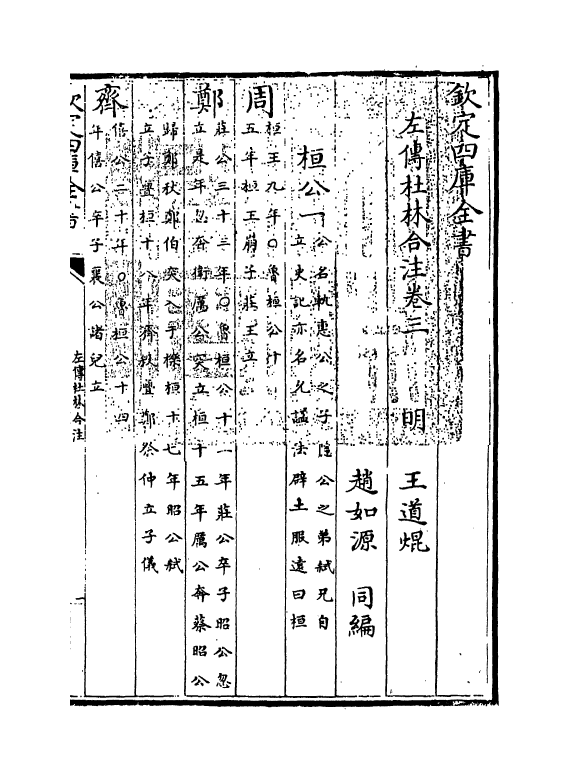 欽定四庫全書
左傳杜林合注卷三　明　王道焜
趙如源　同編
桓公一
公名軌惠公之子隱公之弟弑兄自
立史記亦名允諡法辟土服遠曰桓
周
桓王九年〇魯桓公十
五年桓王崩子莊王立
鄭
莊公三十三年〇魯桓公十一年莊公卒子昭公忽
立是年忽奔衛厲公突立桓十五年厲公奔蔡昭公
歸鄭秋鄭伯突入于櫟桓十七年昭公弑
立子亹桓十八年齊殺亹鄭祭仲立子儀
齊
僖公二十年〇魯桓公十四
年僖公卒子襄公諸兒立
欽定四庫全書
左傳杜林合注
一